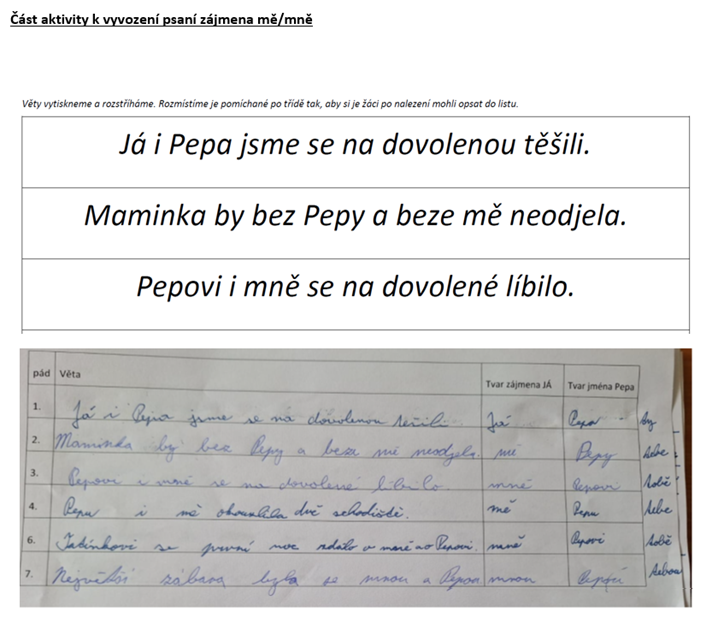 Část aktivity k vyvození psaní zájmena mě/mně
Věty vytiskneme a rozstříháme. Rozmístíme je pomíchané po třídě tak, aby si je žáci po nalezení mohli opsat do listu.
Já i Pepa jsme se na dovolenou těšili.
Maminka by bez Pepy a beze mě neodjela.
Pepovi i mně se na dovolené líbilo.
pád Věta Tvar zájmena JÁ Tvar jména Pepa
1. Já i Pepa jsme se na dovolenou těšili. Já Pepa ty
2. Maminka by bez Pepy a beze mě neodjela. mě Pepy tebe
3. Pepovi i mně se na dovolené líbilo mně Pepovi tobě
4. Pepu i mě okouzlila dvě schodiště. mě Pepu tebe
6. se první noc zdálo o mně a o Pepovi. mně Pepovi tobě
7. Největší zábava byla se mnou a Pepou mnou Pepou tebou